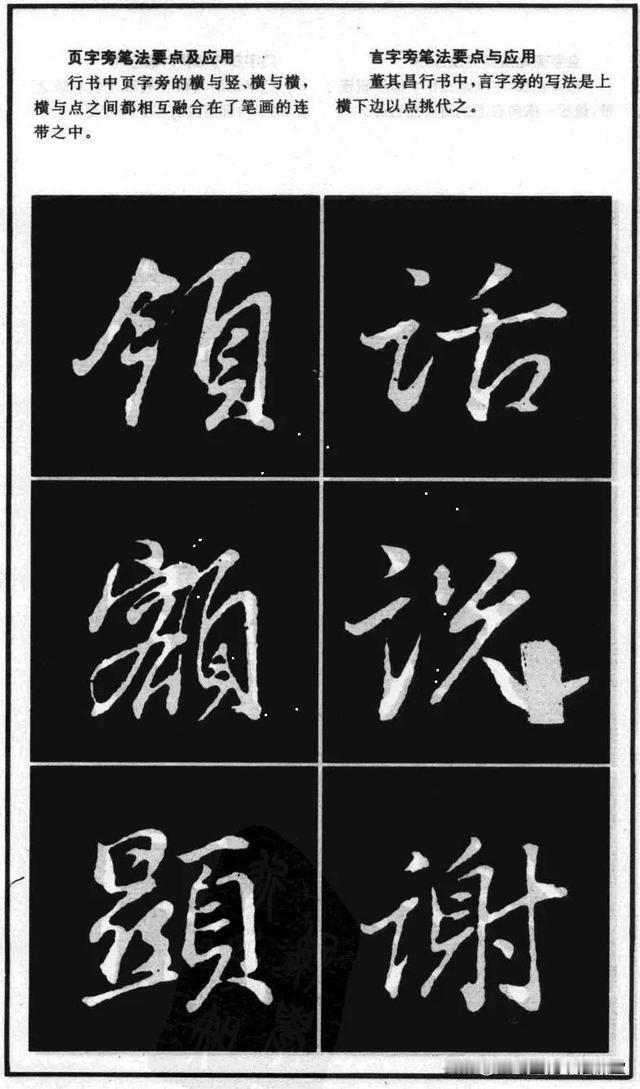 页字旁笔法要点及应用
行书中页字旁的横与竖、横与横，
横与点之间都相互融合在了笔画的连
带之中。
言字旁笔法要点与应用
董其昌行书中，言字旁的写法是上
横下边以点挑代之。
領
話
額
説
顯
謝